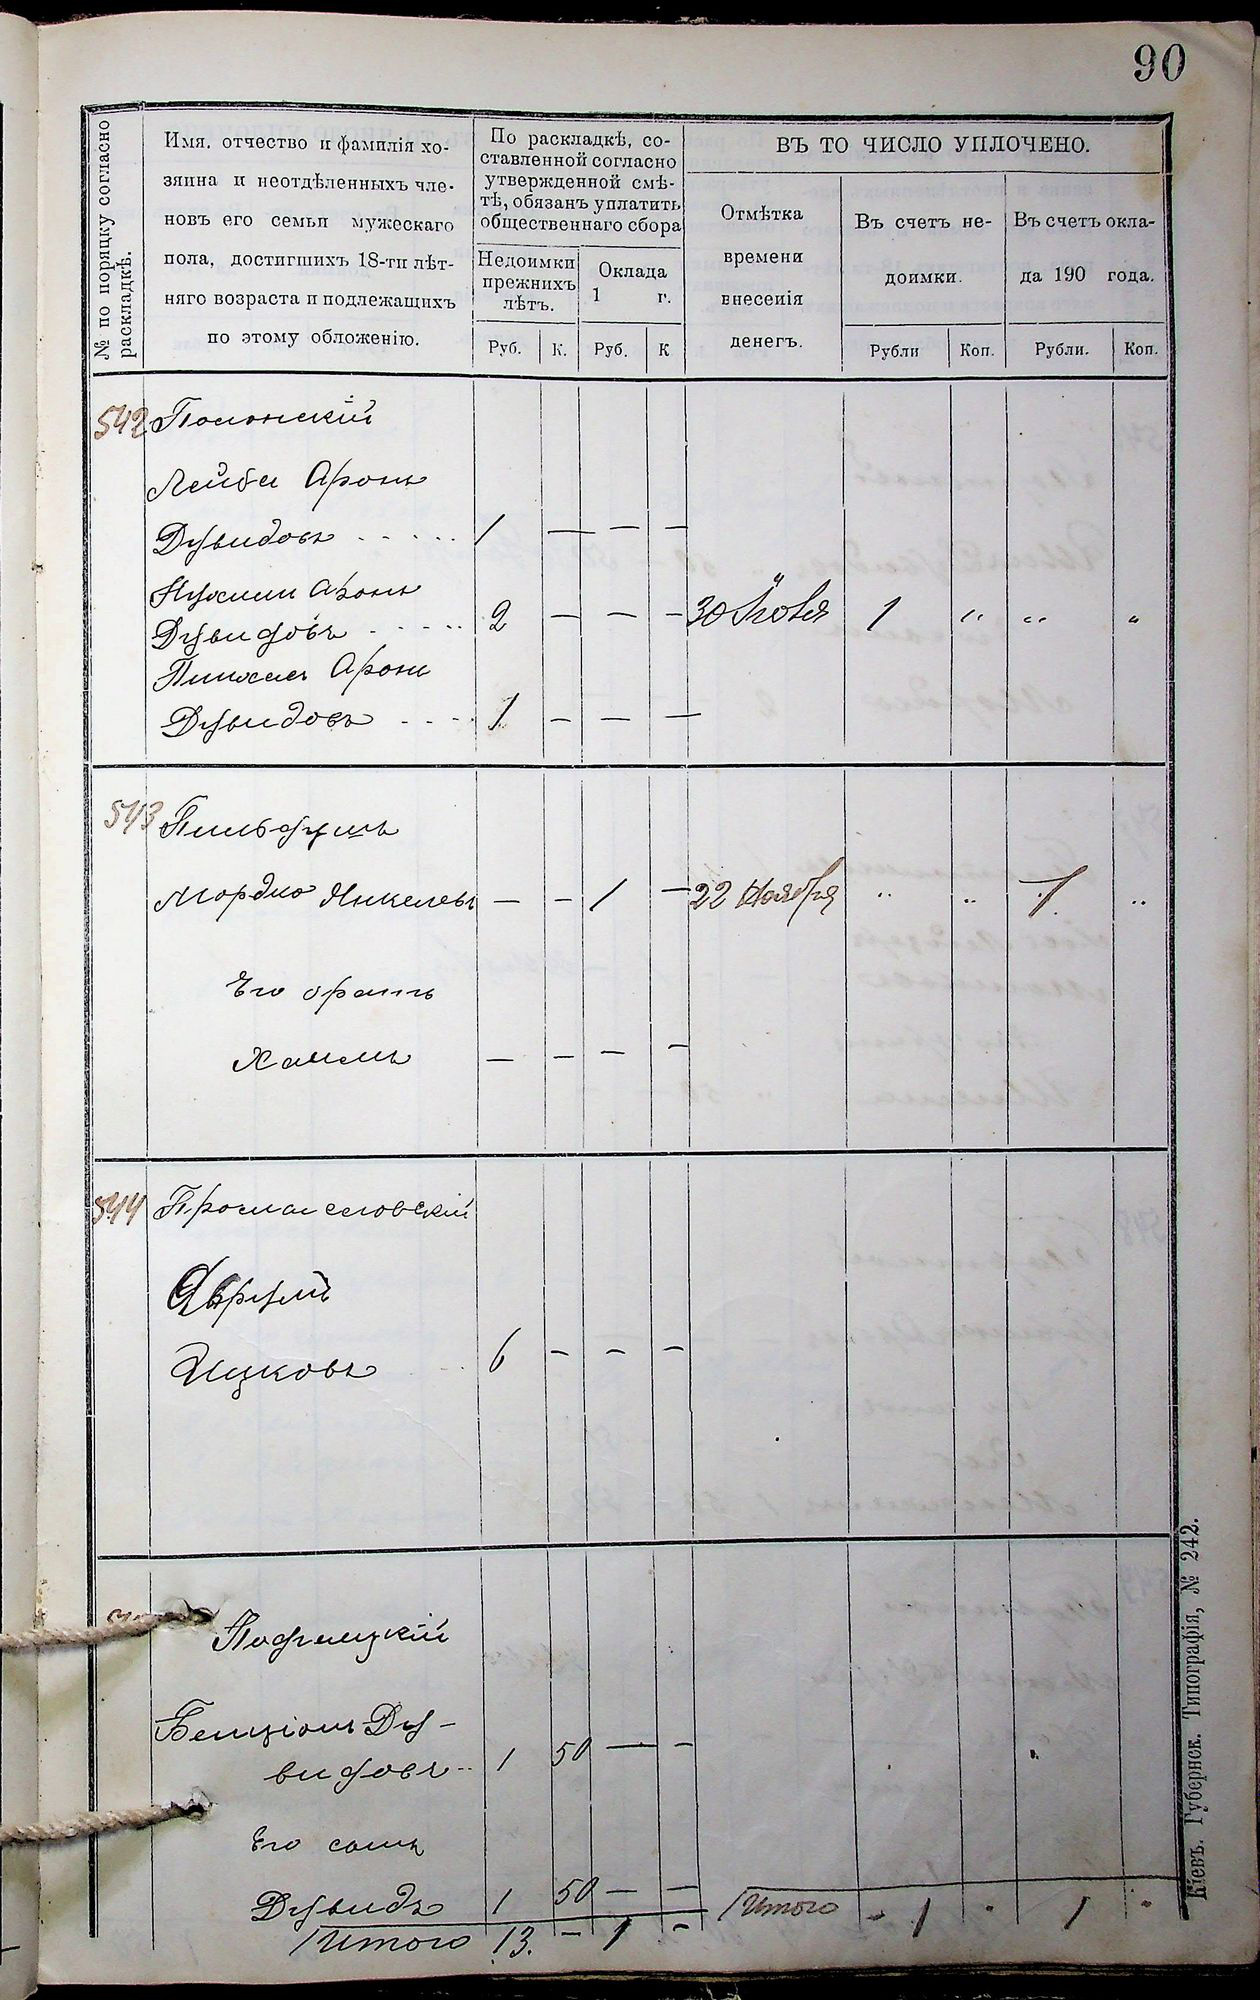 90
№ по порядку согласно
раскладкѣ.
Имя, отчество и фамилія хо-
зяина и неотдѣленныхъ чле-
новъ его семьи мужескаго
пола, достигшихъ 18-ти лѣт-
няго возраста и подлежащихъ
по этому обложенію.
По раскладкѣ, со-
ставленной согласно
утвержденной смѣ-
тѣ, обязанъ уплатить
общественнаго сбора
Недоимки
прежнихъ
лѣтъ.
Оклада
1 г.
Руб. К. Руб. К
ВЪ ТО ЧИСЛО УПЛОЧЕНО.
Отмѣтка
времени
внесенія
денегъ.
Въ счетъ не-
доимки.
Въ счетъ окла-
да 190 года.
Рубли Коп. Рубли. Коп.
542 Полонскій
Лейба Аронъ
Дувидовъ - - - - - 1 — — —
Нухимъ Аронъ
Дувидовъ - - - - - 2 — — — 30 Ноября 1 " " "
Пинхасъ Аронъ
Дувидовъ - - - - 1 — — —
543
Мордко Янкелевъ — — 1 — 22 Ноября " " 1 "
Его братъ
Хаимъ — — — —
544
Аврумъ
Ицковъ 6 — — —
Бенціонъ Ду-
видовъ - - 1 50 — —
Его сынъ
Дувидъ 1 50 — —
Итого 13. — 1 —
Итого - 1 " 1 "
Кіевъ. Губернск. Типографія, № 242.